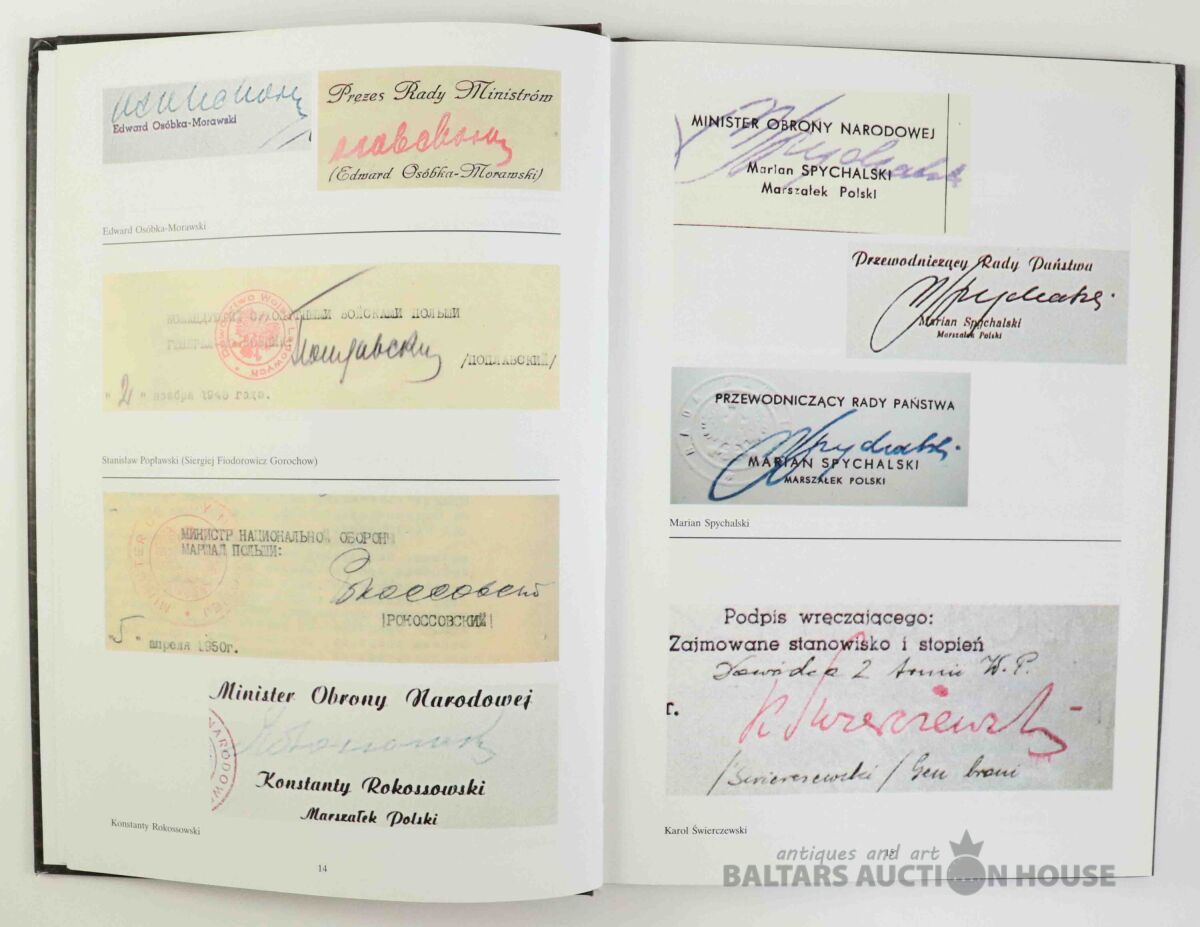 Edward Osóbka-Morawski
Prezes Rady Ministrów
(Edward Osóbka-Morawski)
Edward Osóbka-Morawski
ВОЙСКАМИ ПОЛЬШИ
/ПОПЛАВСКИЙ/
"2" ноября 1948 года.
Stanisław Popławski (Siergiej Fiodorowicz Gorochow)
МИНИСТР НАЦИОНАЛЬНОЙ ОБОРОНЫ
МАРШАЛ ПОЛЬШИ:
Рокоссовский
/РОКОССОВСКИЙ/
"5" апреля 1950г.
Minister Obrony Narodowej
NARODOW
Konstanty Rokossowski
Marszałek Polski
Konstanty Rokossowski
14
MINISTER OBRONY NARODOWEJ
MSpychalski
Marian SPYCHALSKI
Marszałek Polski
Przewodniczący Rady Państwa
MSpychalski
Marian Spychalski
Marszałek Polski
PRZEWODNICZĄCY RADY PAŃSTWA
MSpychalski
MARIAN SPYCHALSKI
MARSZAŁEK POLSKI
Marian Spychalski
Podpis wręczającego:
Zajmowane stanowisko i stopień
Dowódca 2 Armii W.P.
r.
K Świerczewski
/Świerczewski/ Gen broni
Karol Świerczewski
15
antiques and art
BALTARS AUCTION HOUSE